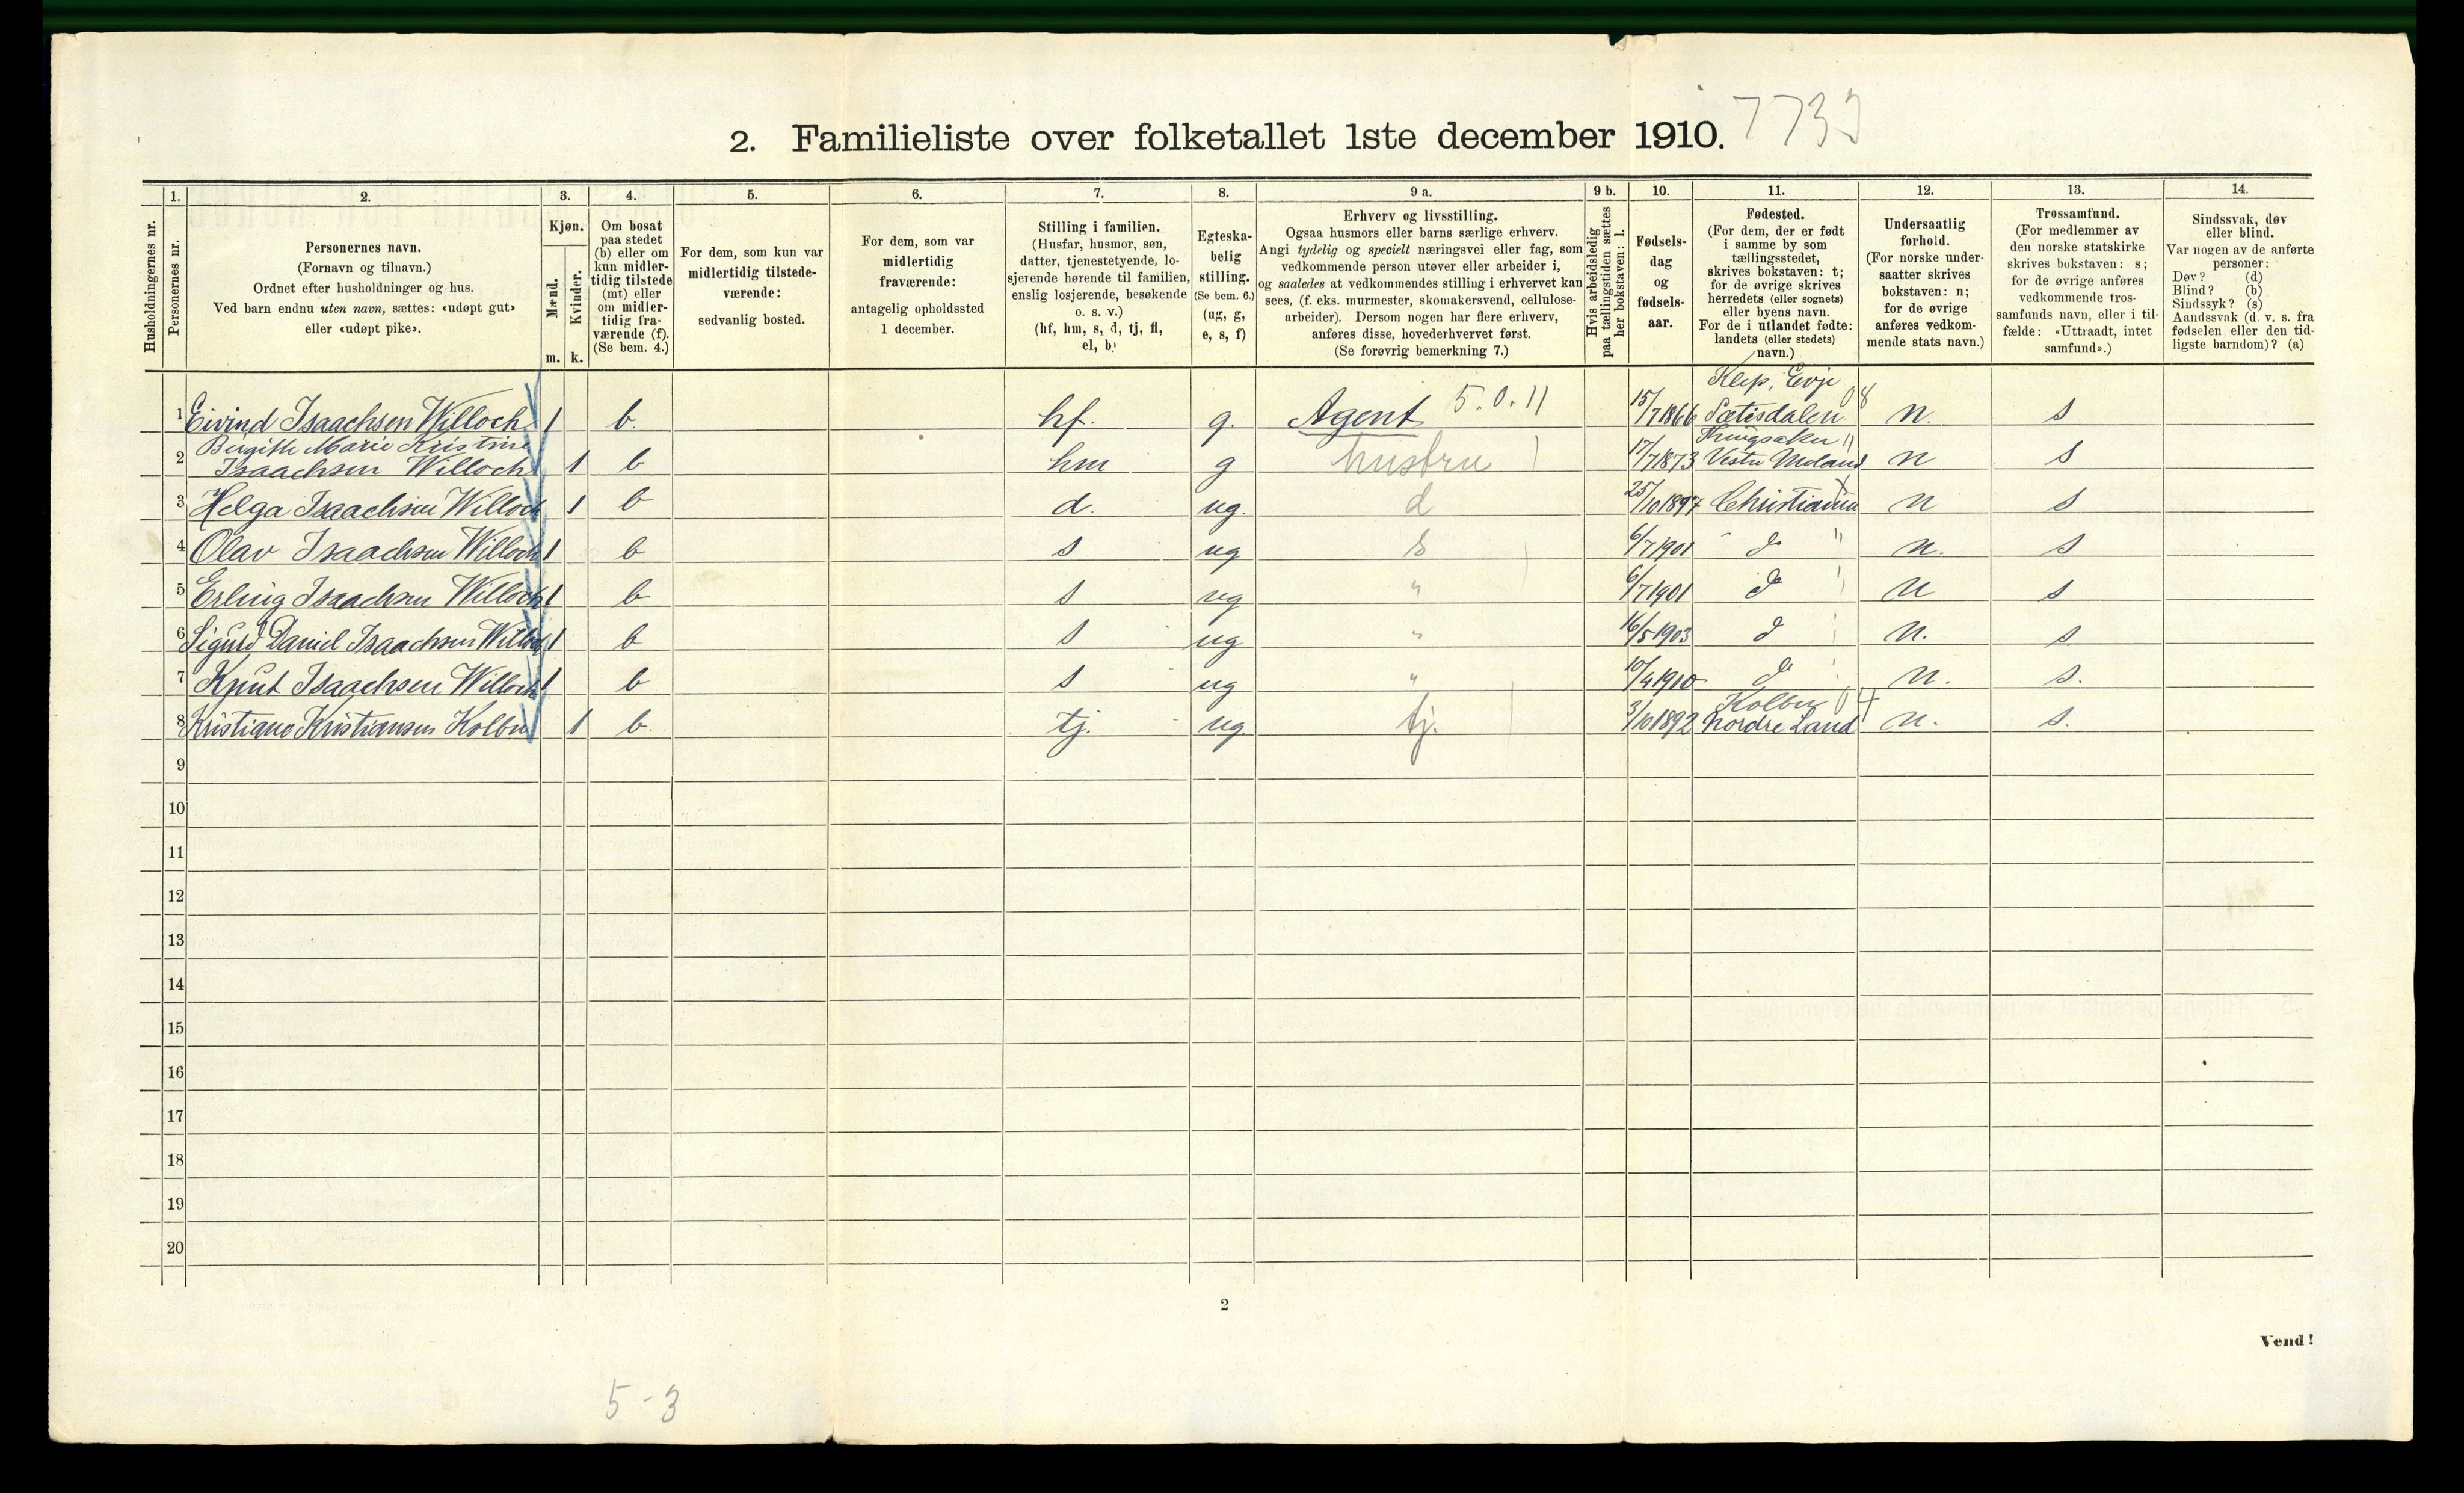 2. Familieliste over folketallet 1ste december 1910. 7733
Husholdningernes nr.
1.
Personernes nr.
2.
Personernes navn.
(Fornavn og tilnavn.)
Ordnet efter husholdninger og hus.
Ved barn endnu uten navn, sættes: «udøpt gut»
eller «udøpt pike».
3.
Kjøn.
Mænd.
Kvinder.
m. k.
4.
Om bosat
paa stedet
(b) eller om
kun midler-
tidig tilstede
(mt) eller
om midler-
tidig fra-
værende (f).
(Se bem. 4.)
5.
For dem, som kun var
midlertidig tilstede-
værende:
sedvanlig bosted.
6.
For dem, som var
midlertidig
fraværende:
antagelig opholdssted
1 december.
7.
Stilling i familien.
(Husfar, husmor, søn,
datter, tjenestetyende, lo-
sjerende hørende til familien,
enslig losjerende, besøkende
o. s. v.)
(hf, hm, s, d, tj, fl,
el, b)
8.
Egteska-
belig
stilling.
(Se bem. 6.)
(ug, g,
e, s, f)
9 a.
Erhverv og livsstilling.
Ogsaa husmors eller barns særlige erhverv.
Angi tydelig og specielt næringsvei eller fag, som
vedkommende person utøver eller arbeider i,
og saaledes at vedkommendes stilling i erhvervet kan
sees, (f. eks. murmester, skomakersvend, cellulose-
arbeider). Dersom nogen har flere erhverv,
anføres disse, hovederhvervet først.
(Se forøvrig bemerkning 7.)
9 b.
Hvis arbeidsledig
paa tællingstiden sættes
her bokstaven: l.
10.
Fødsels-
dag
og
fødsels-
aar.
11.
Fødested.
(For dem, der er født
i samme by som
tællingsstedet,
skrives bokstaven: t;
for de øvrige skrives
herredets (eller sognets)
eller byens navn.
For de i utlandet fødte:
landets (eller stedets)
navn.)
12.
Undersaatlig
forhold.
(For norske under-
saatter skrives
bokstaven: n;
for de øvrige
anføres vedkom-
mende stats navn.)
13.
Trossamfund.
(For medlemmer av
den norske statskirke
skrives bokstaven: s;
for de øvrige anføres
vedkommende tros-
samfunds navn, eller i til-
fælde: «Uttraadt, intet
samfund».)
14.
Sindssvak, døv
eller blind.
Var nogen av de anførte
personer:
Døv? (d)
Blind? (b)
Sindssyk? (s)
Aandssvak (d. v. s. fra
fødselen eller den tid-
ligste barndom)? (a)
Klep, Evje 08
1 Eivind Isaachsen Willoch 1 b. hf. g. Agent 5.0.11 15/7 1866 Sætisdalen n. s
Birgitte Marie Kristine
2 Isaachsen Willoch 1 b hm g hustru 17/7 1873 Vestre Moland n s
3 Helga Isaachsen Willoch 1 b d. ug. d 25/10 1897 Christiania n s
4 Olav Isaachsen Willoch 1 b s ug s 6/7 1901 do " n. s
5 Erling Isaachsen Willoch 1 b s ug " 6/7 1901 do " n s
6 Sigurd Daniel Isaachsen Willoch 1 b s ug " 16/5 1903 do n. s.
7 Knut Isaachsen Willoch 1 b s ug " 10/4 1910 do n. s.
Kolbu 04
8 Kristiane Kristiansen Kolbu 1 b. tj. ug tj. 3/10 1892 Nordre Land n. s.
9
10
11
12
13
14
15
16
17
18
19
20
2
Vend!
5-3